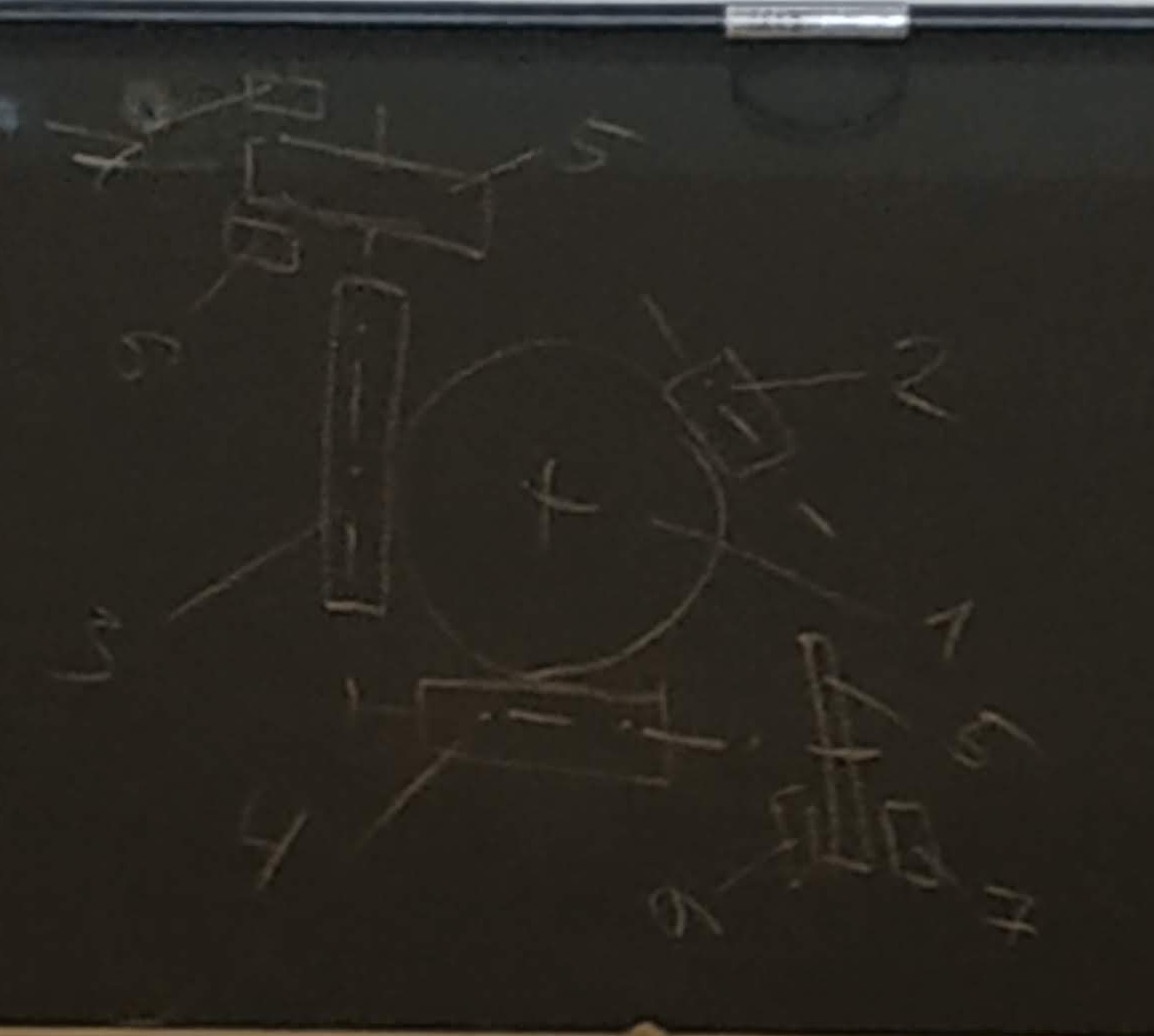 7
5
2
3
1
5
4
7